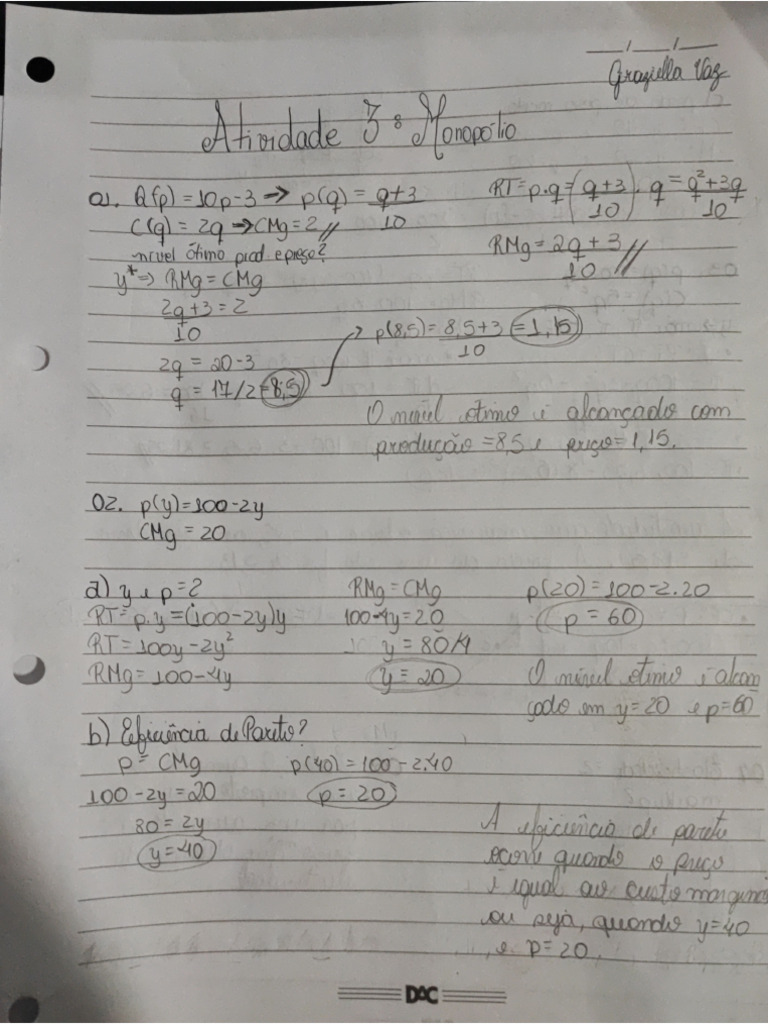 __/__/__
Graziella Vaz
Atividade 3: Monopólio
01. Q(p) = 10p-3 => p(q) = q+3/10
RT = p.q = (q+3/10).q = q²+3q/10
C(q) = 2q → CMg = 2//
RMg = 2q+3/10//
nível ótimo prod. e preço?
y* => RMg = CMg
2q+3/10 = 2
2q = 20-3
q = 17/2 = 8,5
p(8,5) = 8,5+3/10 = 1,15
O nível ótimo é alcançado com
produção = 8,5 e preço = 1,15.
02. p(y) = 100-2y
CMg = 20
a) y e p = ?
RT = p.y = (100-2y)y
RT = 100y-2y²
RMg = 100-4y
RMg = CMg
100-4y = 20
y = 80/4
y = 20
p(20) = 100-2.20
p = 60
O nível ótimo é alcan
çado em y=20 e p=60
b) Eficiência de Pareto?
p = CMg
100-2y = 20
80 = 2y
y = 40
p(40) = 100-2.40
p = 20
A eficiência de pareto
ocorre quando o preço
é igual ao custo margina
ou seja, quando y=40
e p=20.
DAC